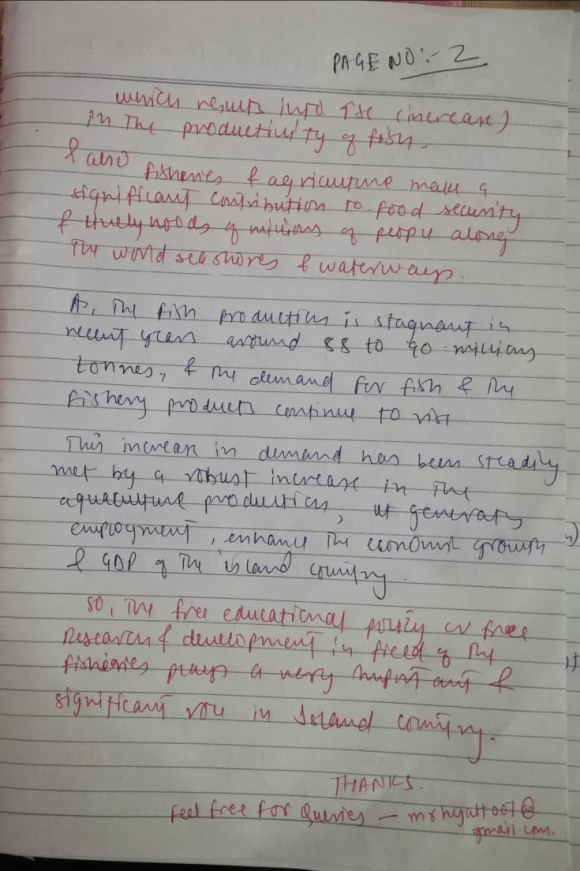 PAGE NO:- 2
which results into rise (increase)
in the productivity of fish.
& also fisheries & agriculture make a
significant contribution to food security
& livelyhoods of millions of people along
the world seashores & waterways.
As, the fish production is stagnant in
recent years around 88 to 90 millions
tonnes, & the demand for fish & the
fishery products continue to rise
This increase in demand has been steadily
met by a robust increase in the
aquaculture production, it generats
employment, enhance the economic growth
& GDP of the island country.
So, the free educational policy or free
Research & development in field of the
fisheries plays a very important &
significant role in Island country.
THANKS.
Feel free for Queries - mrhyatt007@
gmail.com.